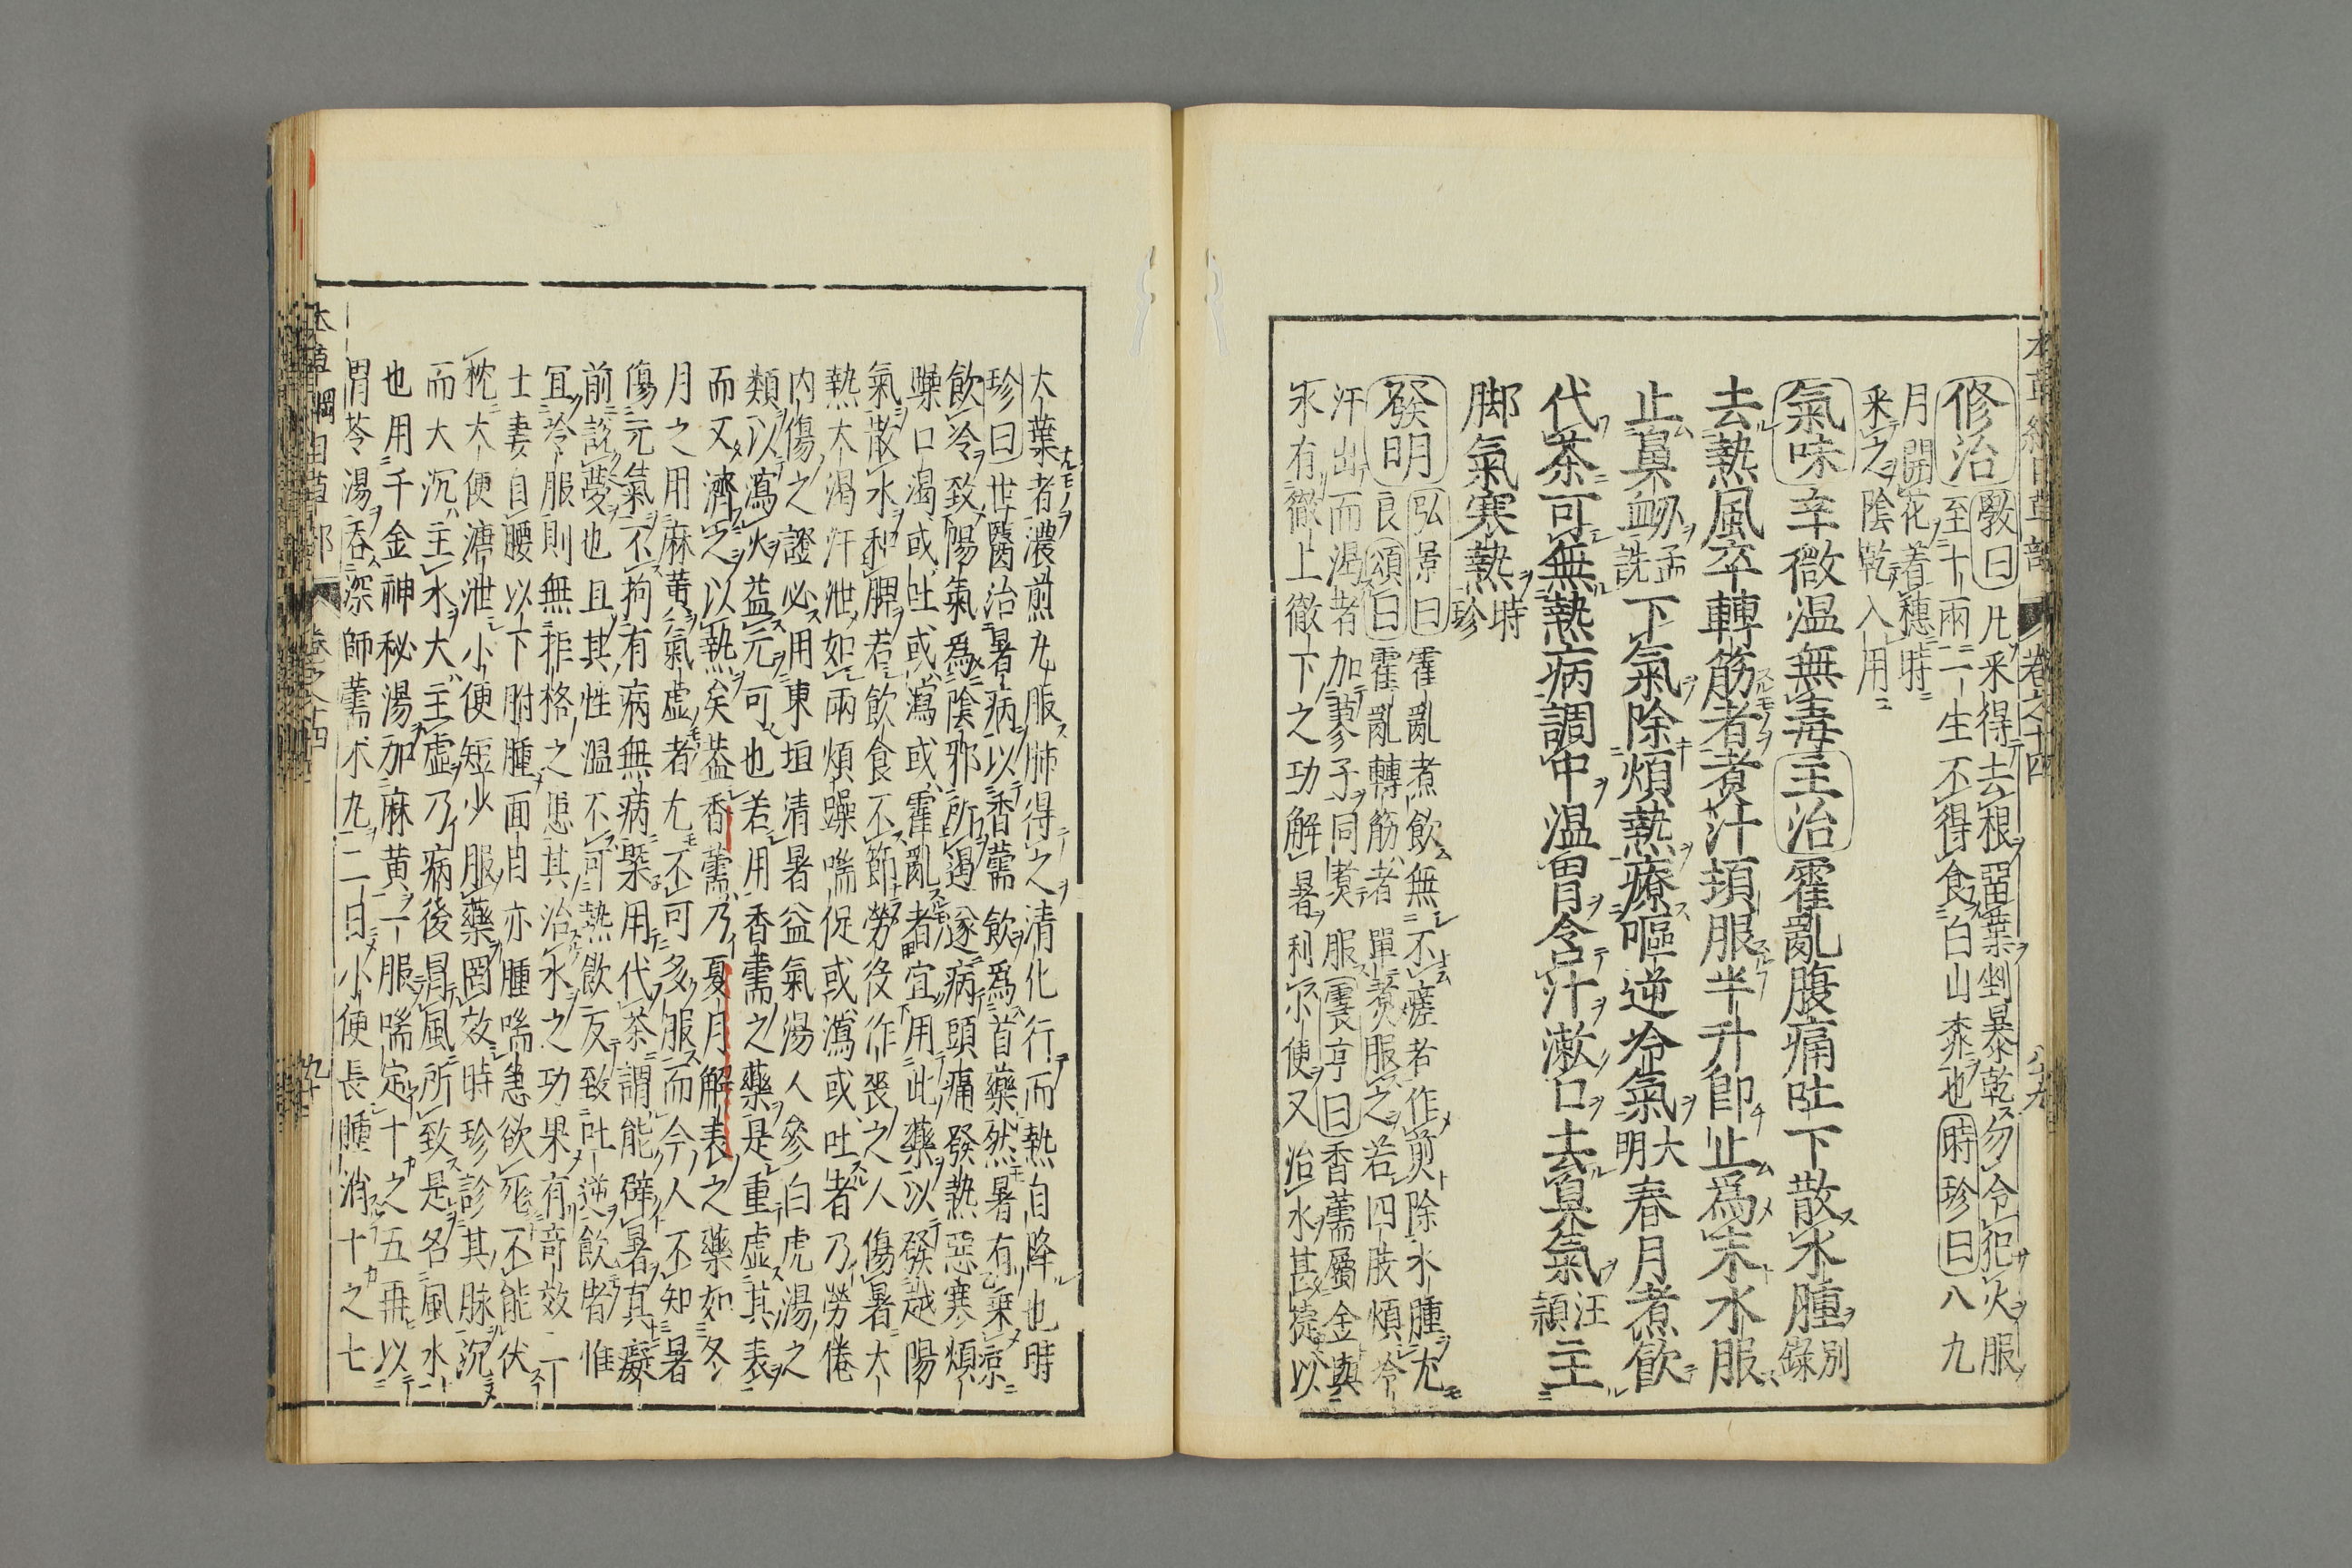 本草綱目草部 卷之十四 八十九
修治 斅曰凡采得去根留葉剉暴乾勿令犯火服
至十兩一生不得食白山桃也時珍曰八九
月開花着穗時
采之陰乾入用
氣味辛微溫無毒主治霍亂腹痛吐下散水腫別錄
去熱風卒轉筋者煮汁頓服半升卽止爲末水服
止鼻衄孟詵下氣除煩熱療嘔逆冷氣大明春月煮飲
代茶可無熱病調中溫胃含汁漱口去臭氣汪穎主
脚氣寒熱時珍
發明 弘景曰霍亂煮飲無不瘥者作煎除水腫尤
良頌曰霍亂轉筋者單煮服之若四肢煩冷
汗出而渴者加蓼子同煮服震亨曰香薷屬金與
水有徹上徹下之功解暑利小便又治水甚捷以
大葉者濃煎丸服肺得之清化行而熱自降也時
珍曰世醫治暑病以香薷飲爲首藥然暑有乘涼
飲冷致陽氣爲陰邪所遏遂病頭痛發熱惡寒煩
躁口渴或吐或瀉或霍亂者宜用此藥以發越陽
氣散水和脾若飲食不節勞役作喪之人傷暑大
熱大渴汗泄如雨煩躁喘促或瀉或吐者乃勞倦
内傷之證必用東垣清暑益氣湯人參白虎湯之
類以瀉火益元可也若用香薷之藥是重虛其表
而又濟之以熱矣蓋香薷乃夏月解表之藥如冬
月之用麻黄氣虛者尤不可多服而今人不知暑
傷元氣不拘有病無病槩用代茶謂能辟暑真癡
前說夢也且其性溫不可熱飲反致吐逆飲者惟
宜冷服則無拒格之患其治水之功果有奇效一
士妻自腰以下胕腫面目亦腫喘急欲死不能伏
枕大便溏泄小便短少服藥罔效時珍診其脉沉
而大沉主水大主虛乃病後冒風所致是名風水
也用千金神秘湯加麻黄一服喘定十之五再以
胃苓湯吞深師薷朮丸二日小便長腫消十之七
本草綱目草部 卷之十四 九十